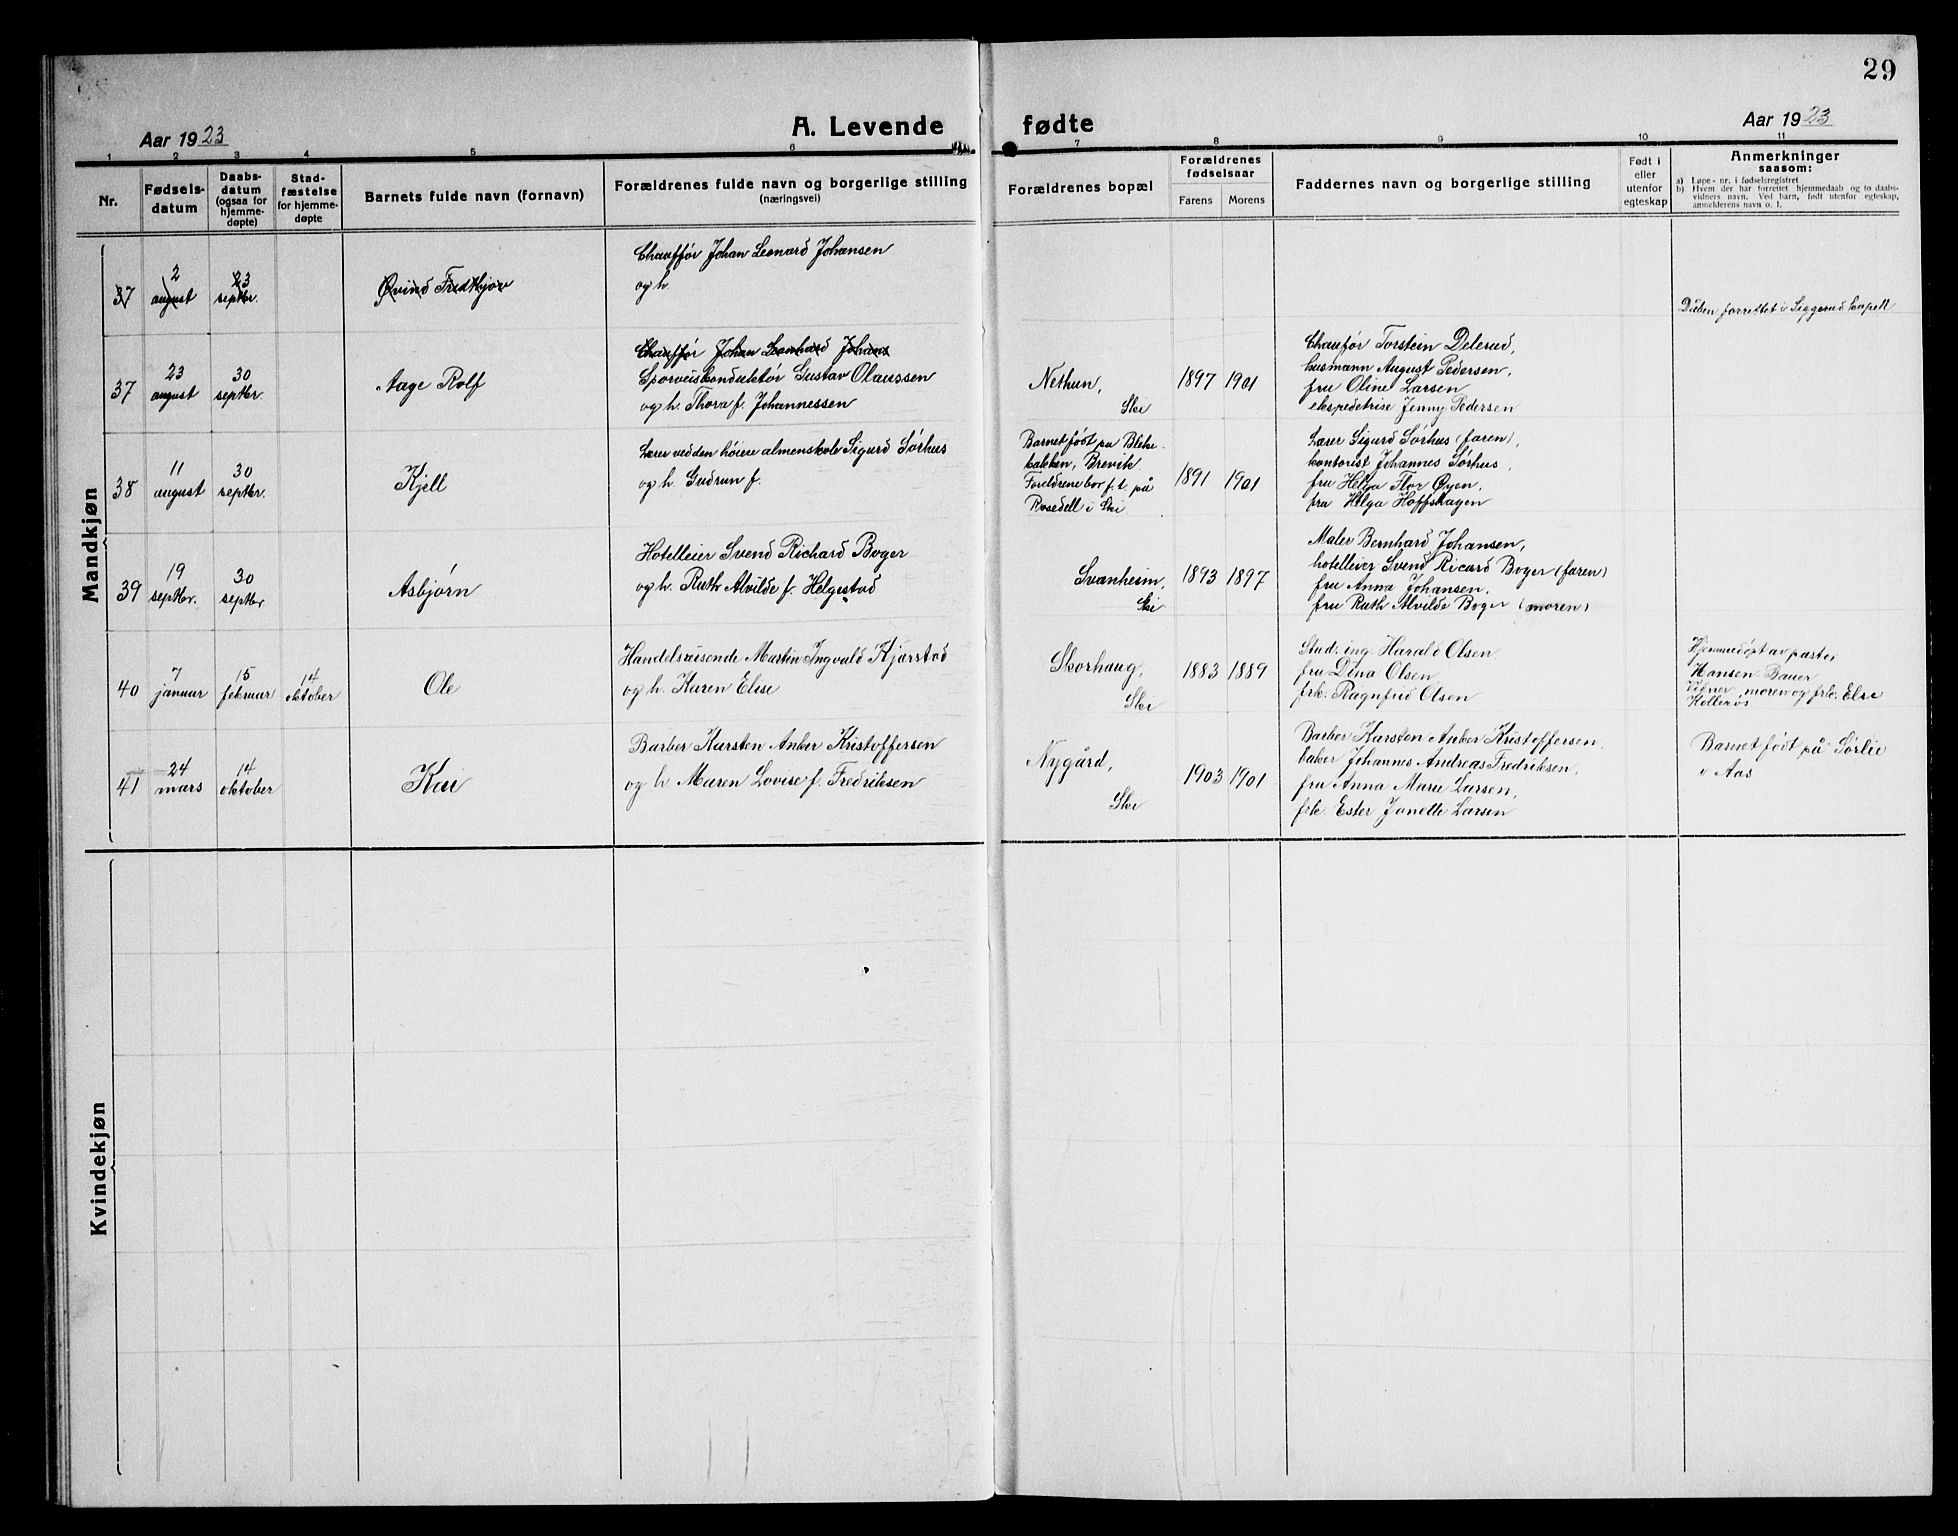 29
Aar 1923
A. Levende fødte
Aar 1923
1 2 3 4 5 6 7 8 9 10 11
Nr.
Fødselsdatum
Daabsdatum (ogsaa for hjemmedøpte)
Stadfæstelse for hjemmedøpte
Barnets fulde navn (fornavn)
Forældrenes fulde navn og borgerlige stilling
(næringsvei)
Forældrenes bopæl
Forældrenes fødselsaar
Farens Morens
Faddernes navn og borgerlige stilling
Født i eller utenfor egteskap
Anmerkninger saasom:
a) Løpe-nr. i fødselsregistret
b) Hvem der har forrettet hjemmedaab og to daabsvidners navn. Ved barn, født utenfor egteskap, anmelderens navn o. l.
Mandkjøn
37
2 august
23 septbr.
Øvind Fredthjov
Chauffør Johan Leonard Johansen
og h.
Dåben forrettet i Siggerud kapell
37
23 august
30 septbr.
Aage Rolf
Chauffør Johan Leonhard Johans
Sporveiskonduktør Gustav Olaussen
og h. Thora f. Johannessen
Nethun,
Ski
1897 1901
Chaufør Torstein Delerud,
husmann August Pedersen,
fru Oline Larsen
ekspedetrise Jenny Pedersen
38
11 august
30 septbr.
Kjell
Lærer ved den høiere almenskole Sigurd Sørhus
og h. Gudrun f.
Barnet født på Blekebakken, Brevik.
Foreldrene bor f. t. på
Rosedell i Ski
1891 1901
Lærer Sigurd Sørhus (faren),
kontorist Johannes Sørhus,
fru Helga Flor Øyen,
fru Helga Hoffshagen
39
19 septbr.
30 septbr
Asbjørn
Hotelleier Svend Richard Boger
og h. Ruth Alvilde f. Helgestad
Svanheim,
Ski
1893 1897
Maler Bernhard Johansen,
hotelleier Svend Ricard Boger (faren)
fru Anna Johansen,
fru Ruth Alvilde Boger (moren)
40
7 januar
15 februar
14 oktober
Ole
Handelsreisende Martin Ingvald Kjærstad
og h. Karen Elise
Skorhaug,
Ski
1883 1889
Stud. ing. Harald Olsen
fru Dina Olsen
frk. Ragnfrid Olsen
Hjemmedøpt av pastor
Hansen-Bauer
Vidner, moren og frk. Else
41
24 mars
14 oktober
Kai
Barber Karsten Anker Kristoffersen
og h. Maren Lovise f. Fredriksen
Nygård,
Ski
1903 1901
Barber Karsten Anker Kristoffersen,
baker Johannes Andreas Fredriksen,
fru Anna Marie Larsen,
frk. Ester Janette Larsen
Barnet født på Sørlie
i Aas
Kvindekjøn